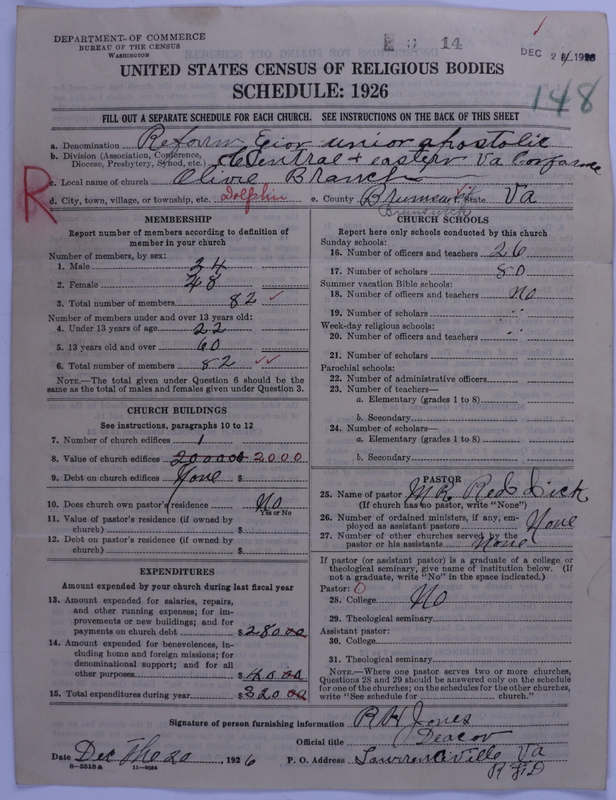 DEPARTMENT OF COMMERCE
BUREAU OF THE CENSUS
WASHINGTON
14
DEC 2 1926
UNITED STATES CENSUS OF RELIGIOUS BODIES
SCHEDULE: 1926
148
FILL OUT A SEPARATE SCHEDULE FOR EACH CHURCH. SEE INSTRUCTIONS ON THE BACK OF THIS SHEET
a. Denomination Reform Zion union apostolic
b. Division (Association, Conference, Diocese, Presbytery, Synod, etc.) Central + eastern Va
c. Local name of church Olive Branch
R
d. City, town, village, or township, etc. Dolphin e. County Brunswick State Va
Brunswick
MEMBERSHIP
Report number of members according to definition of member in your church
Number of members, by sex:
1. Male 34
2. Female 48
3. Total number of members 82 ✓
Number of members under and over 13 years old:
4. Under 13 years of age 22
5. 13 years old and over 60
6. Total number of members 82 ✓✓
NOTE.—The total given under Question 6 should be the same as the total of males and females given under Question 3.
CHURCH BUILDINGS
See instructions, paragraphs 10 to 12
7. Number of church edifices 1
8. Value of church edifices 2000
9. Debt on church edifices None $
10. Does church own pastor's residence No
Yes or No
11. Value of pastor's residence (if owned by church) $
12. Debt on pastor's residence (if owned by church) $
EXPENDITURES
Amount expended by your church during last fiscal year
13. Amount expended for salaries, repairs, and other running expenses; for improvements or new buildings; and for payments on church debt $ 280.00
14. Amount expended for benevolences, including home and foreign missions; for denominational support; and for all other purposes $ 40.00
15. Total expenditures during year $ 320.00
CHURCH SCHOOLS
Report here only schools conducted by this church
Sunday schools:
16. Number of officers and teachers 26
17. Number of scholars 80
Summer vacation Bible schools:
18. Number of officers and teachers No
19. Number of scholars
Week-day religious schools:
20. Number of officers and teachers
21. Number of scholars
Parochial schools:
22. Number of administrative officers
23. Number of teachers—
a. Elementary (grades 1 to 8)
b. Secondary
24. Number of scholars—
a. Elementary (grades 1 to 8)
b. Secondary
PASTOR
25. Name of pastor M R Red Dick
(If church has no pastor, write "None")
26. Number of ordained ministers, if any, employed as assistant pastors None
27. Number of other churches served by the pastor or his assistants None
If pastor (or assistant pastor) is a graduate of a college or theological seminary, give name of institution below. (If not a graduate, write "No" in the space indicated.)
Pastor: 0
28. College No
29. Theological seminary
Assistant pastor:
30. College
31. Theological seminary
NOTE.—Where one pastor serves two or more churches, Questions 28 and 29 should be answered only on the schedule for one of the churches; on the schedules for the other churches, write "See schedule for church."
Signature of person furnishing information R H Jones
Official title Deacov
Date Dec the 20, 1926 P. O. Address Lawrenceville Va
R F D
8—5518 a 11—4084